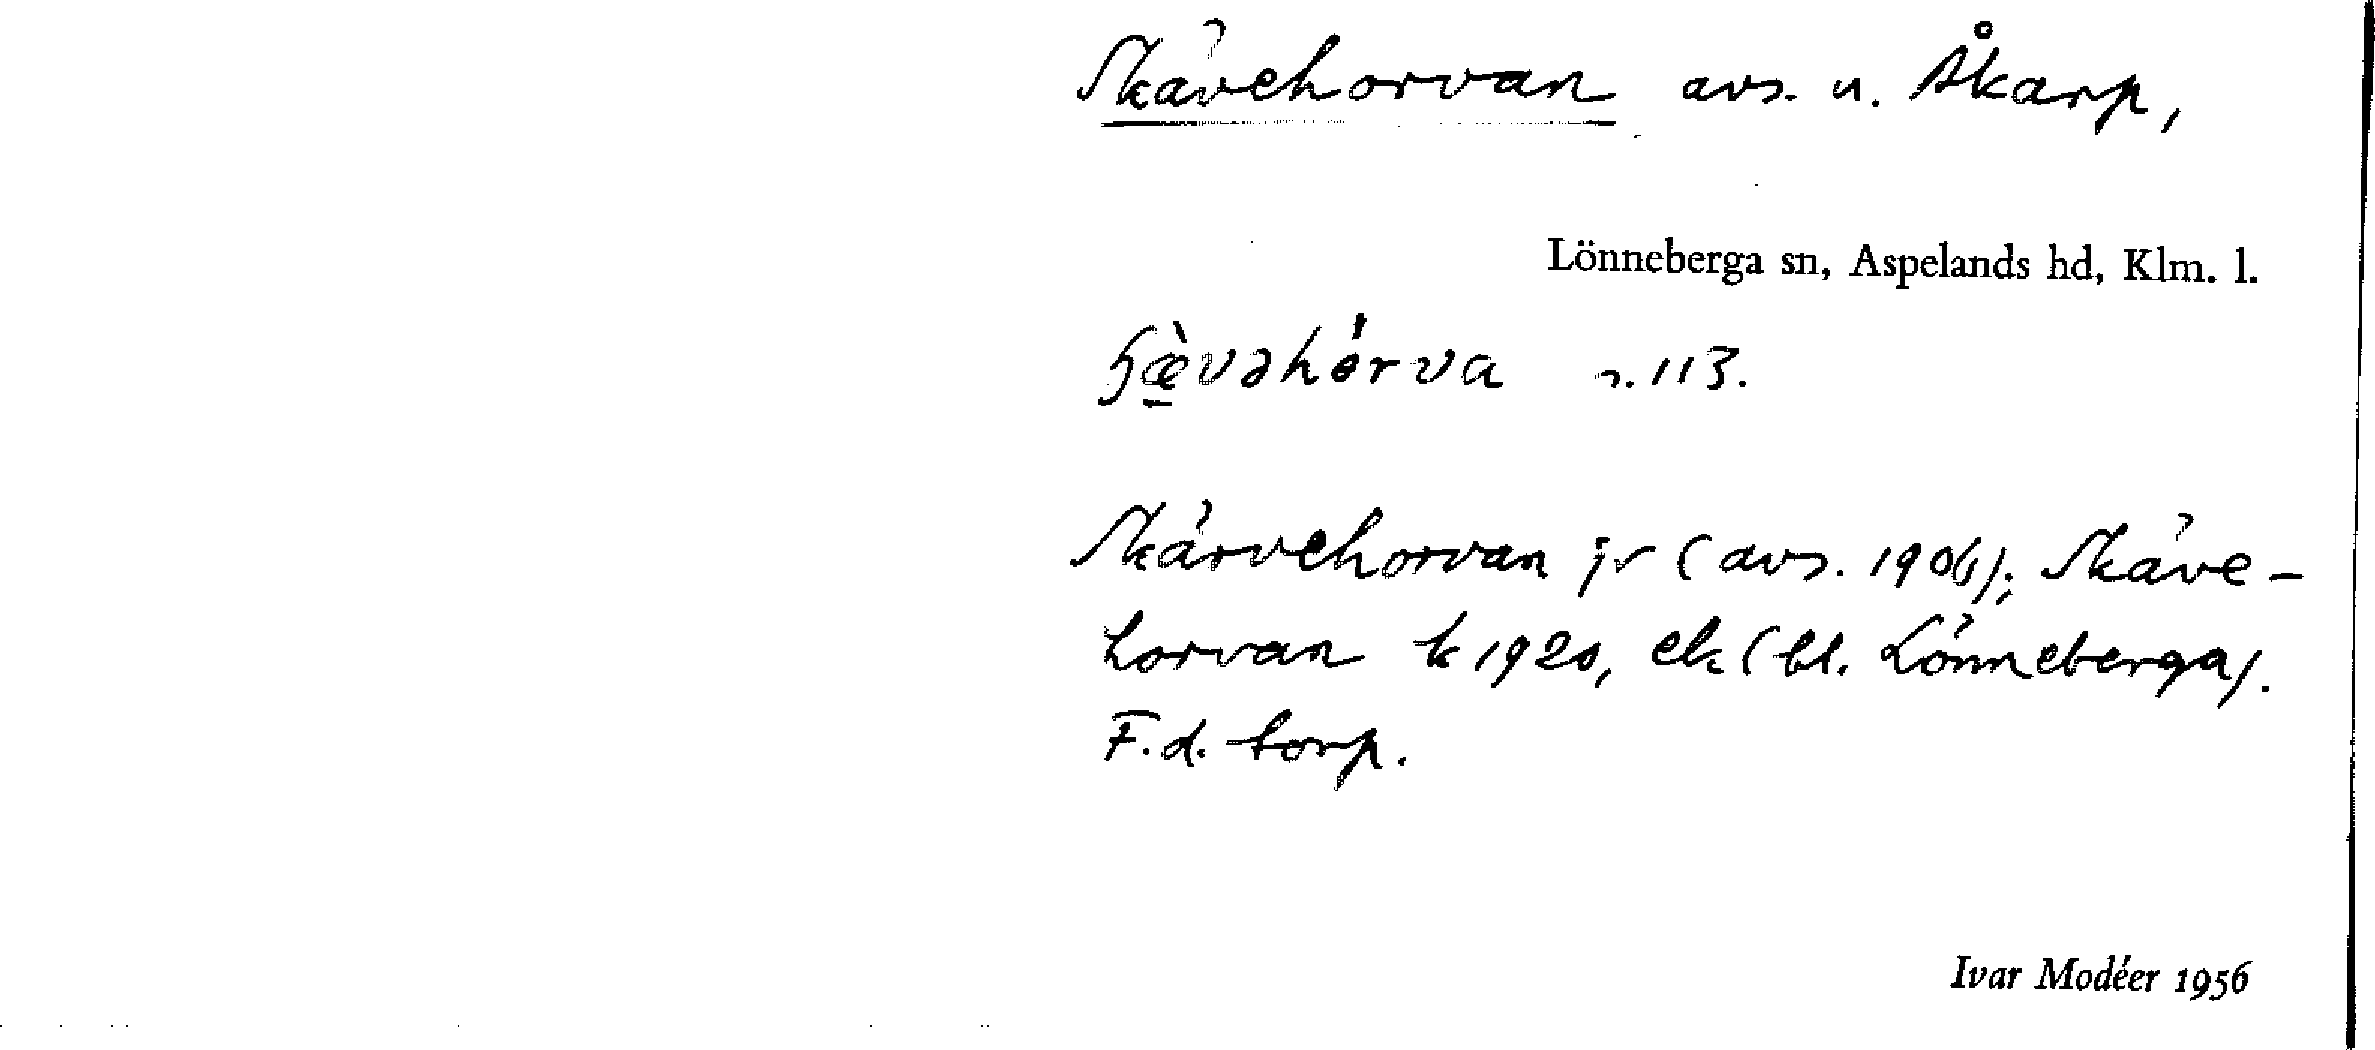 Skävehorvan avs. u. Åkarp,
Lönneberga sn, Aspelands hd, Klm. l.
ɧæ̀vəhórva n. 113.
Skärvehorvan jr (avs. 1906); Skäve-
horvan k 1920, ek (bl. Lönneberga).
F.d. torp.
Ivar Modéer 1956